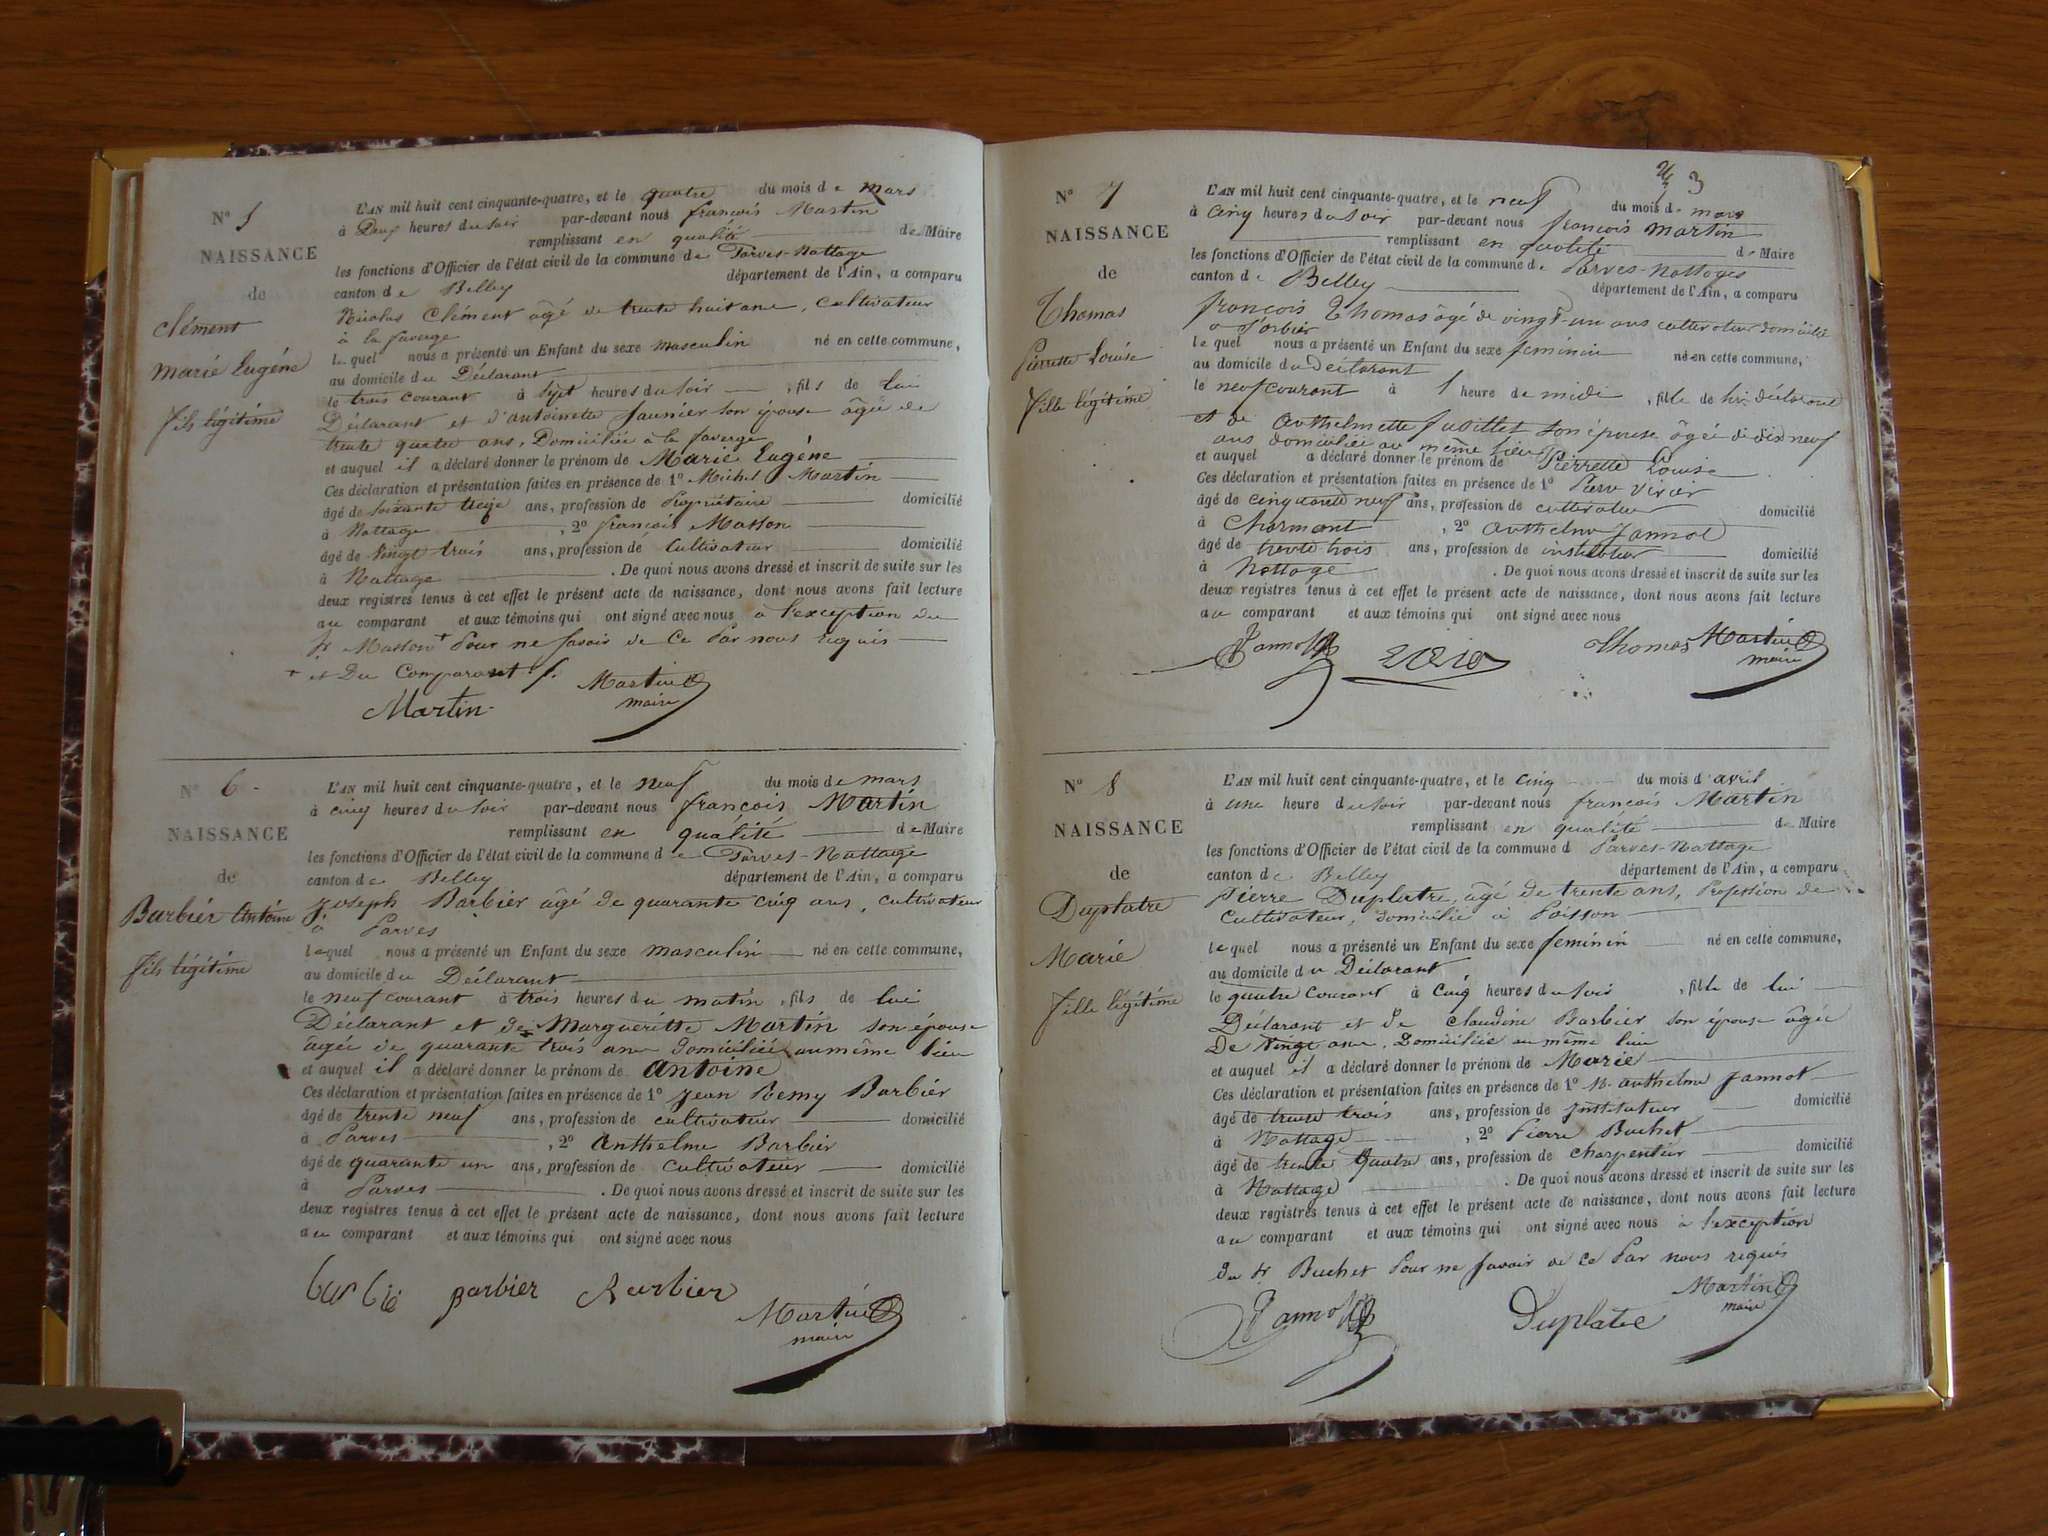 N° 5
NAISSANCE
de
Clément
Marie Eugéne
fils légitime
L'AN mil huit cent cinquante-quatre, et le quatre du mois de Mars
à Deux heures du soir par-devant nous françois Martin
remplissant en qualité de Maire
les fonctions d'Officier de l'état civil de la commune de Parves-Nattage
canton de Belley département de l'Ain, a comparu
Nicolas Clément âgé de trente huit ans, cultivateur
à la faverge
lequel nous a présenté un Enfant du sexe masculin né en cette commune,
au domicile du Déclarant
le trois courant à sept heures du soir, fils de lui
Déclarant et d'antoinette son épouse âgée de
trente quatre ans, Domiciliée à la faverge
et auquel il a déclaré donner le prénom de Marie Eugéne
Ces déclaration et présentation faites en présence de 1° Michel Martin
âgé de soixante treize ans, profession de Propriétaire domicilié
à Nattage, 2° françois Masson
âgé de vingt trois ans, profession de Cultivateur domicilié
à Nattage. De quoi nous avons dressé et inscrit de suite sur les
deux registres tenus à cet effet le présent acte de naissance, dont nous avons fait lecture
au comparant et aux témoins qui ont signé avec nous à l'exception du
Sr Masson + Pour ne savoir de ce Par nous requis
+ et Du Comparant
Martin Martin
maire
N° 6
NAISSANCE
de
Barbier Antoine
fils légitime
L'AN mil huit cent cinquante-quatre, et le neuf du mois de mars
à cinq heures du soir par-devant nous françois Martin
remplissant en qualité de Maire
les fonctions d'Officier de l'état civil de la commune de Parves-Nattage
canton de Belley département de l'Ain, a comparu
Joseph Barbier âgé de quarante cinq ans, cultivateur
à Parves
lequel nous a présenté un Enfant du sexe masculin né en cette commune,
au domicile du Déclarant
le neuf courant à trois heures du matin, fils de lui
Déclarant et de Margueritte Martin son épouse
âgée de quarante trois ans domiciliée au même lieu
et auquel il a déclaré donner le prénom de antoine
Ces déclaration et présentation faites en présence de 1° Jean Remy Barbier
âgé de trente neuf ans, profession de cultivateur domicilié
à Parves, 2° Anthelme Barbier
âgé de quarante un ans, profession de cultivateur domicilié
à Parves. De quoi nous avons dressé et inscrit de suite sur les
deux registres tenus à cet effet le présent acte de naissance, dont nous avons fait lecture
au comparant et aux témoins qui ont signé avec nous
Barbier Barbier Martin
maire
3
N° 7
NAISSANCE
de
Thomas
Pierrette Louise
fille légitime
L'AN mil huit cent cinquante-quatre, et le neuf du mois de mars
à cinq heures du soir par-devant nous françois Martin
remplissant en qualité de Maire
les fonctions d'Officier de l'état civil de la commune de Parves-Nattages
canton de Belley département de l'Ain, a comparu
françois Thomas âgé de vingt-un ans cultivateur domicilié
à Sorbier
lequel nous a présenté un Enfant du sexe feminin né en cette commune,
au domicile du déclarant
le neuf courant à 1 heure de midi, fille de lui déclarant
et de Anthelmette son épouse âgée de dix neuf
ans domiciliée au même lieu
et auquel a déclaré donner le prénom de Pierrette Louise
Ces déclaration et présentation faites en présence de 1° Pierre
âgé de cinquante neuf ans, profession de cultivateur domicilié
à Charmont, 2° Anthelme Jannot
âgé de trente trois ans, profession de instituteur domicilié
à Nattage. De quoi nous avons dressé et inscrit de suite sur les
deux registres tenus à cet effet le présent acte de naissance, dont nous avons fait lecture
au comparant et aux témoins qui ont signé avec nous
Jannot Thomas Martin
maire
N° 8
NAISSANCE
de
Duplatre
Marie
fille légitime
L'AN mil huit cent cinquante-quatre, et le cinq du mois d'avril
à une heure du soir par-devant nous françois Martin
remplissant en qualité de Maire
les fonctions d'Officier de l'état civil de la commune d Parves-Nattage
canton de Belley département de l'Ain, a comparu
Pierre Duplatre, âgé de trente ans, Profession de
Cultivateur, domicilié à Poisson
lequel nous a présenté un Enfant du sexe feminin né en cette commune,
au domicile du Déclarant
le quatre courant à cinq heures du soir, fille de lui
Déclarant et de Claudine Barbier son épouse âgée
De Vingt ans, Domiciliée au même lieu
et auquel il a déclaré donner le prénom de Marie
Ces déclaration et présentation faites en présence de 1° M. anthelme Jannot
âgé de trente trois ans, profession de Instituteur domicilié
à Nattage, 2° Pierre Buchet
âgé de trente quatre ans, profession de charpentier domicilié
à Nattage. De quoi nous avons dressé et inscrit de suite sur les
deux registres tenus à cet effet le présent acte de naissance, dont nous avons fait lecture
au comparant et aux témoins qui ont signé avec nous à l'exception
du Sr Buchet Pour ne savoir de ce Par nous requis
Jannot Duplatre Martin
maire